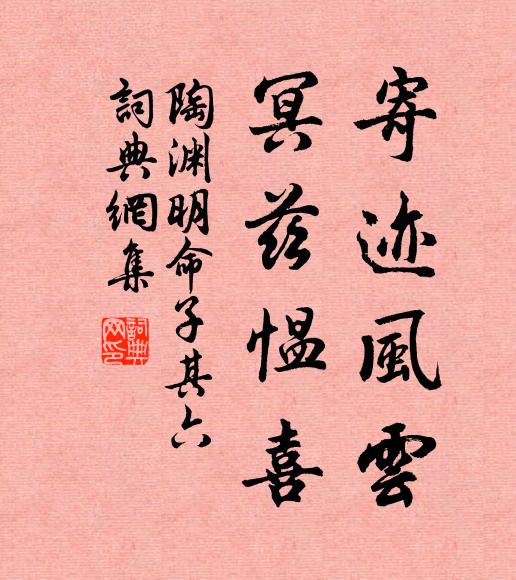 寄迹風雲
冥茲愠喜
陶渊明命子其六
詞典網集
詞典
网印